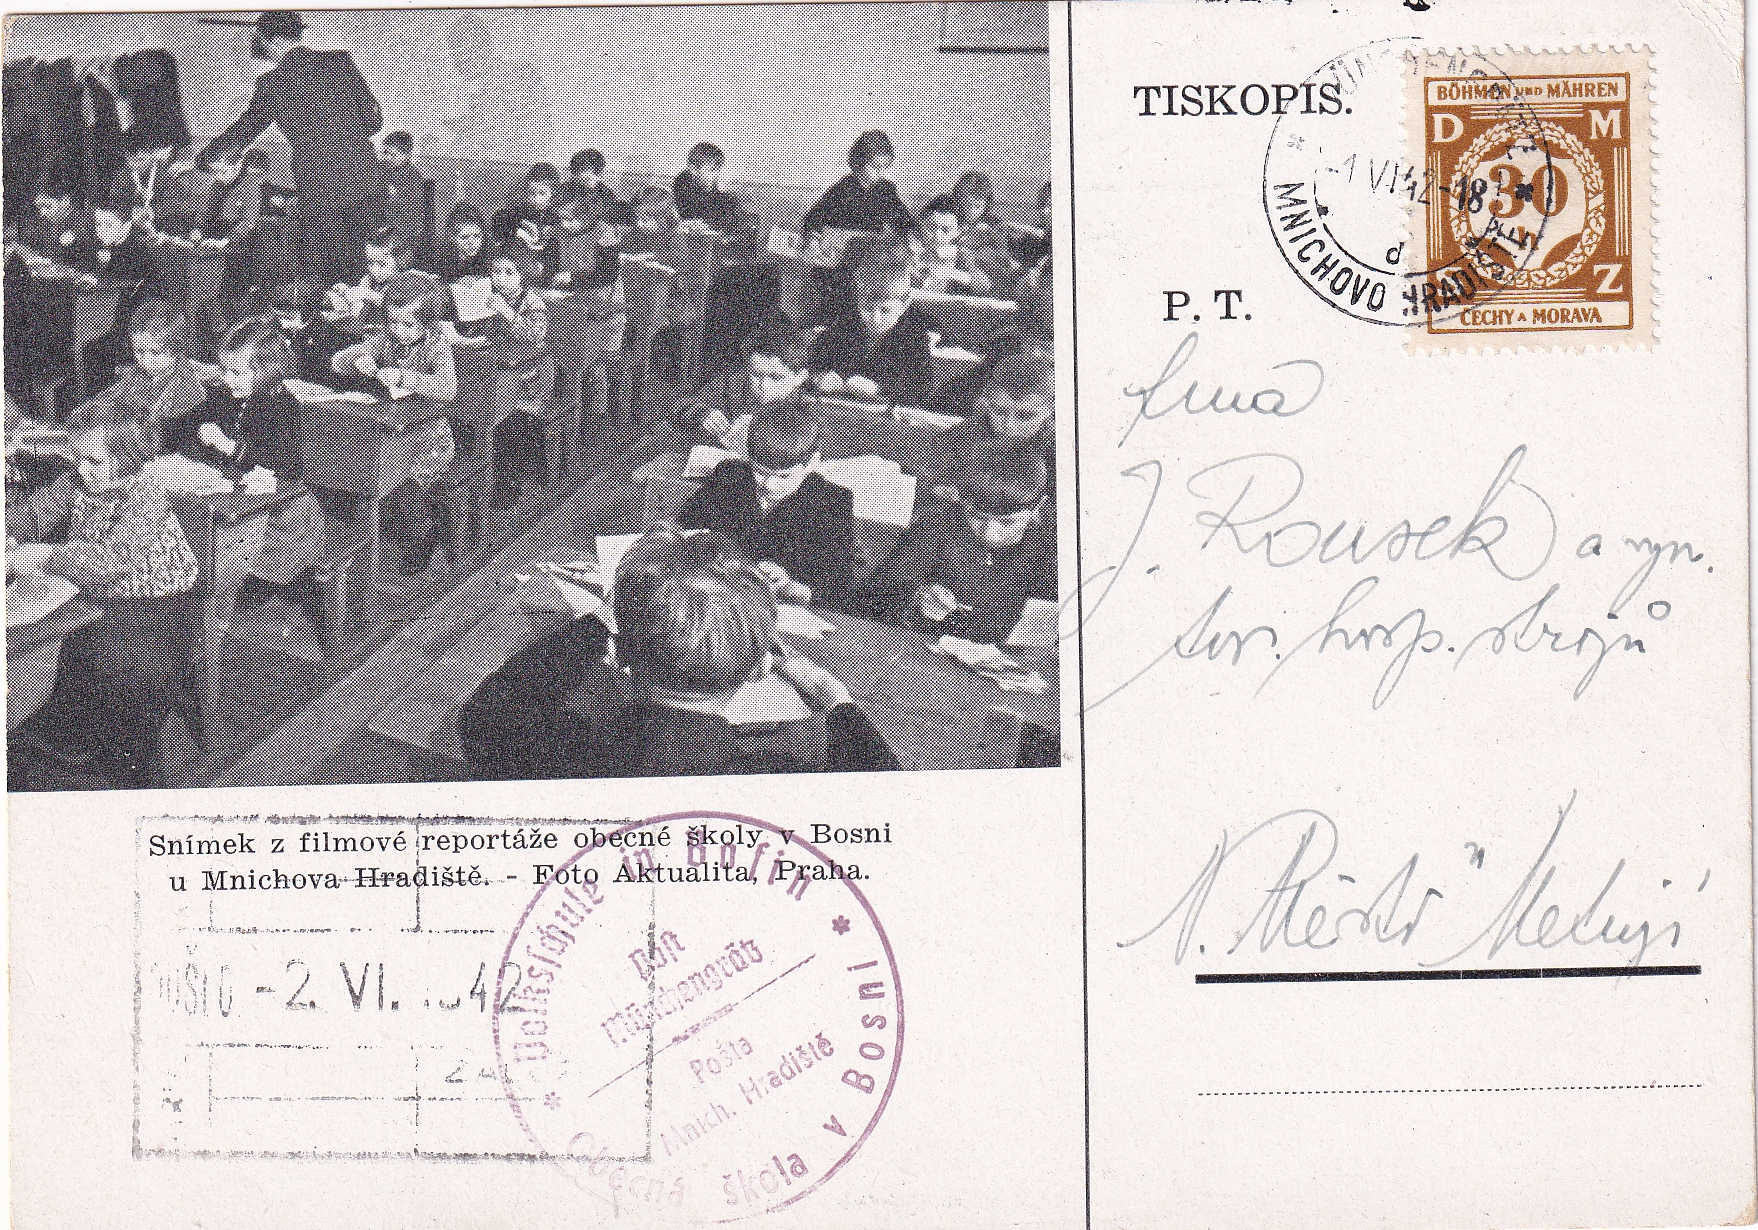 TISKOPIS.
BÖHMEN UND MÄHREN
D M
30
M Z
ČECHY A MORAVA
MÜNCHENGRÄTZ
-1 VI 42-18
d
MNICHOVO HRADIŠTĚ
P. T.
Firma
J. Rousek a
hosp. strojů
N. Město n Metují
Snímek z filmové reportáže obecné školy v Bosni
u Mnichova Hradiště. - Foto Aktualita, Praha.
DOŠLO -2. VI. 1942
Volksschule in Bosin
Post
Münchengrätz
Pošta
Mnich. Hradiště
Obecná škola v Bosni